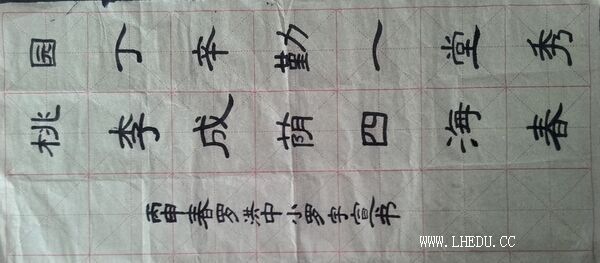 园丁辛勤一堂秀
桃李成荫四海春
丙申春罗洪中小罗宇宣书
www.LHEDU.CC